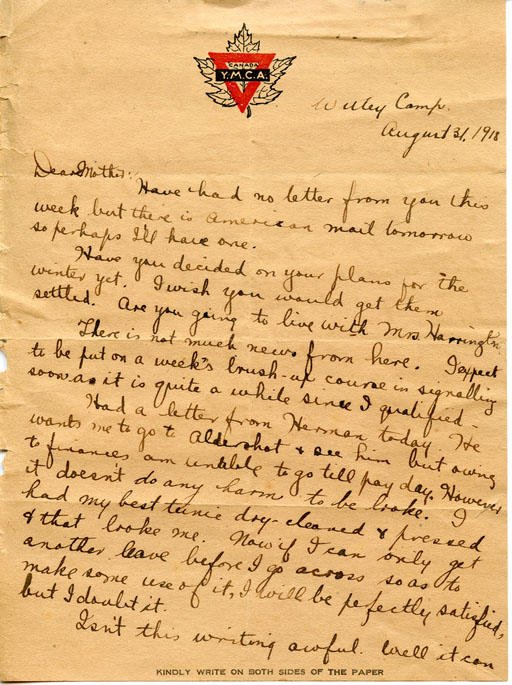 CANADA
Y.M.C.A.
Witley Camp.
August 31, 1918
Dear Mother:
Have had no letter from you this
week but there is American mail tomorrow
so perhaps I'll have one.
Have you decided on your plans for the
winter yet. I wish you would get them
settled. Are you going to live with Mrs. Harrington
There is not much news from here. I expect
to be put on a week's brush-up course in signalling
soon as it is quite a while since I qualified -
Had a letter from Herman today. He
wants me to go to Aldershot & see him but owing
to finances am unable to go till pay day. However
it doesn't do any harm to be broke. I
had my best tunic dry-cleaned & pressed
& that broke me. Now if I can only get
another leave before I go across so as to
make some use of it, I will be perfectly satisfied,
but I doubt it.
Isn't this writing awful. Well it can
KINDLY WRITE ON BOTH SIDES OF THE PAPER